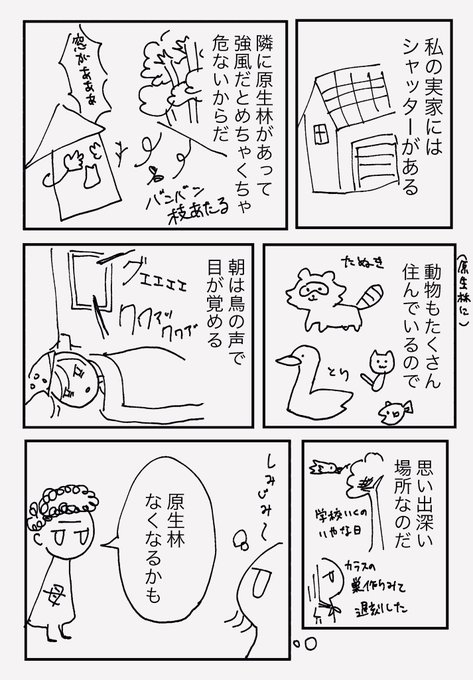 私の実家には
シャッターがある
隣に原生林があって
強風だとめちゃくちゃ
危ないからだ
窓がぁぁぁ
バンバン
枝あたる
(原生林に)
動物もたくさん
住んでいるので
たぬき
とり
朝は鳥の声で
目が覚める
グエエエエ
クワァックワァ
思い出深い
場所なのだ
学校いくの
いやな日
カラスの
巣作りみて
遅刻した
しみじみ〜
原生林
なくなるかも
母